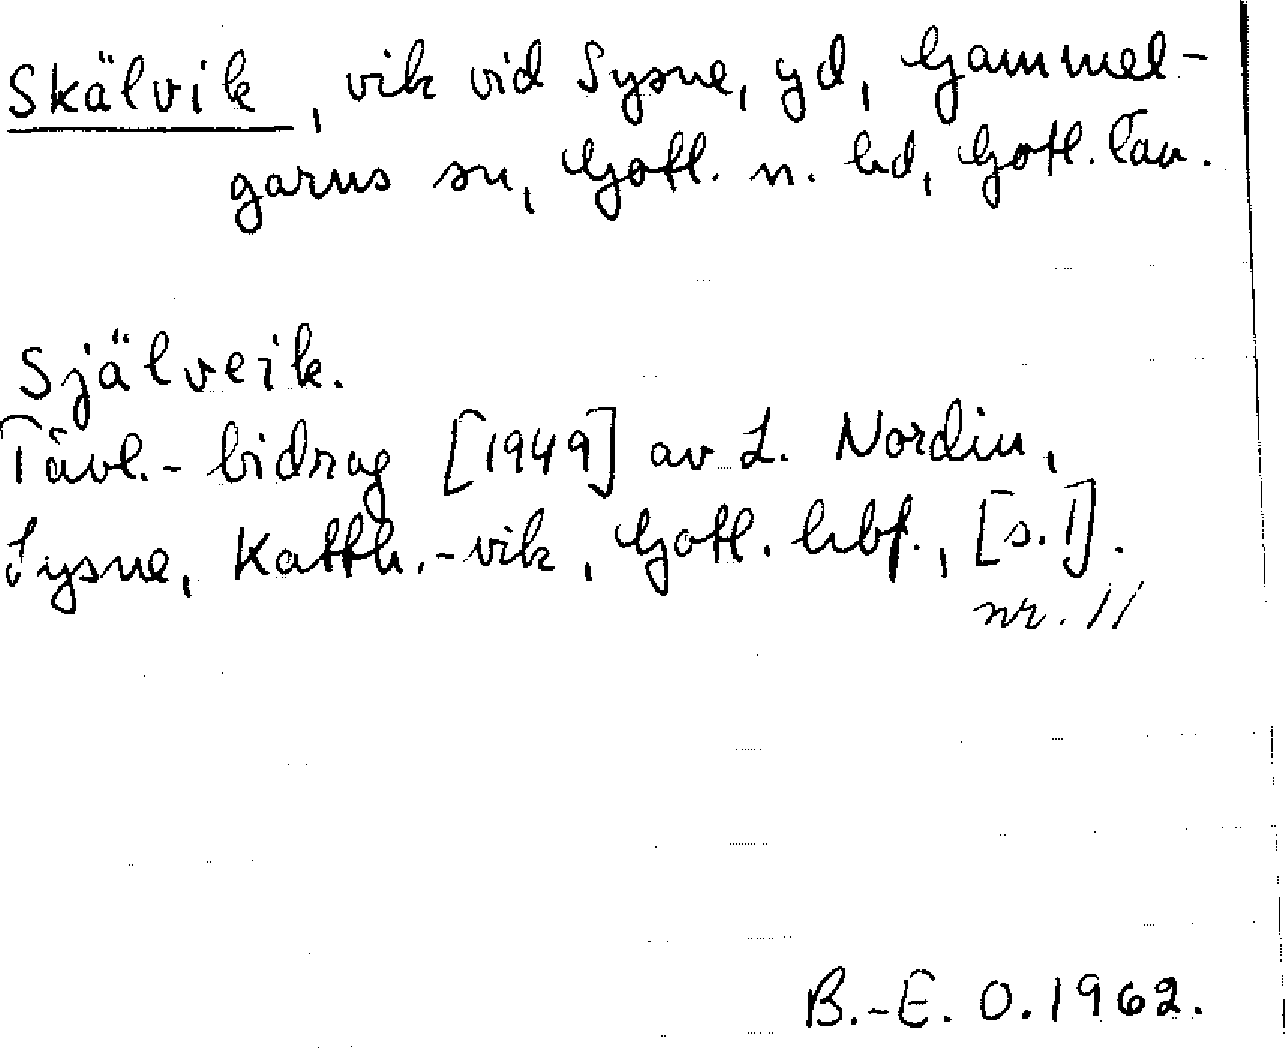 Skälvik, vik vid Sysne, gd, Gammel-
garns sn, Gotl. n. hd, Gotl. län.
Själveik.
Tävl.-bidrag [1949] av L. Nordin,
Sysne, Katth.-vik, Gotl. hbf., [s. 1].
nr. 11
B.-E. O. 1962.